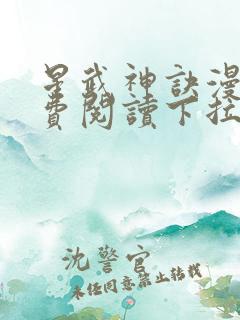 星武神訣漫
費閱讀下拉
沈警官
未任同意禁止转载